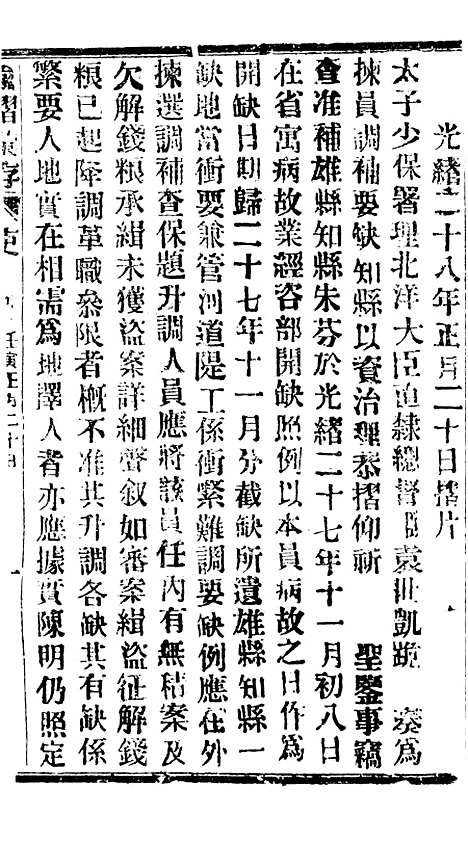 光緒二十八年正月二十日摺片
太子少保署理北洋大臣直隸總督臣袁世凱跪 奏爲
揀員調補要缺知縣以資治理恭摺仰祈 聖鑒事竊
查准補雄縣知縣朱芬於光緒二十七年十一月初八日
在省寓病故業經咨部開缺照例以本員病故之日作爲
開缺日期歸二十七年十一月分截缺所遺雄縣知縣一
缺地當衝要兼管河道隄工係衝繁難調要缺例應在外
揀選調補查保題升調人員應將該員任內有無積案及
欠解錢粮承緝未獲盜案詳細聲叙如審案緝盜征解錢
粮已起降調革職叅限者概不准其升調各缺其有缺係
緊要人地實在相需爲地擇人者亦應據實陳明仍照定